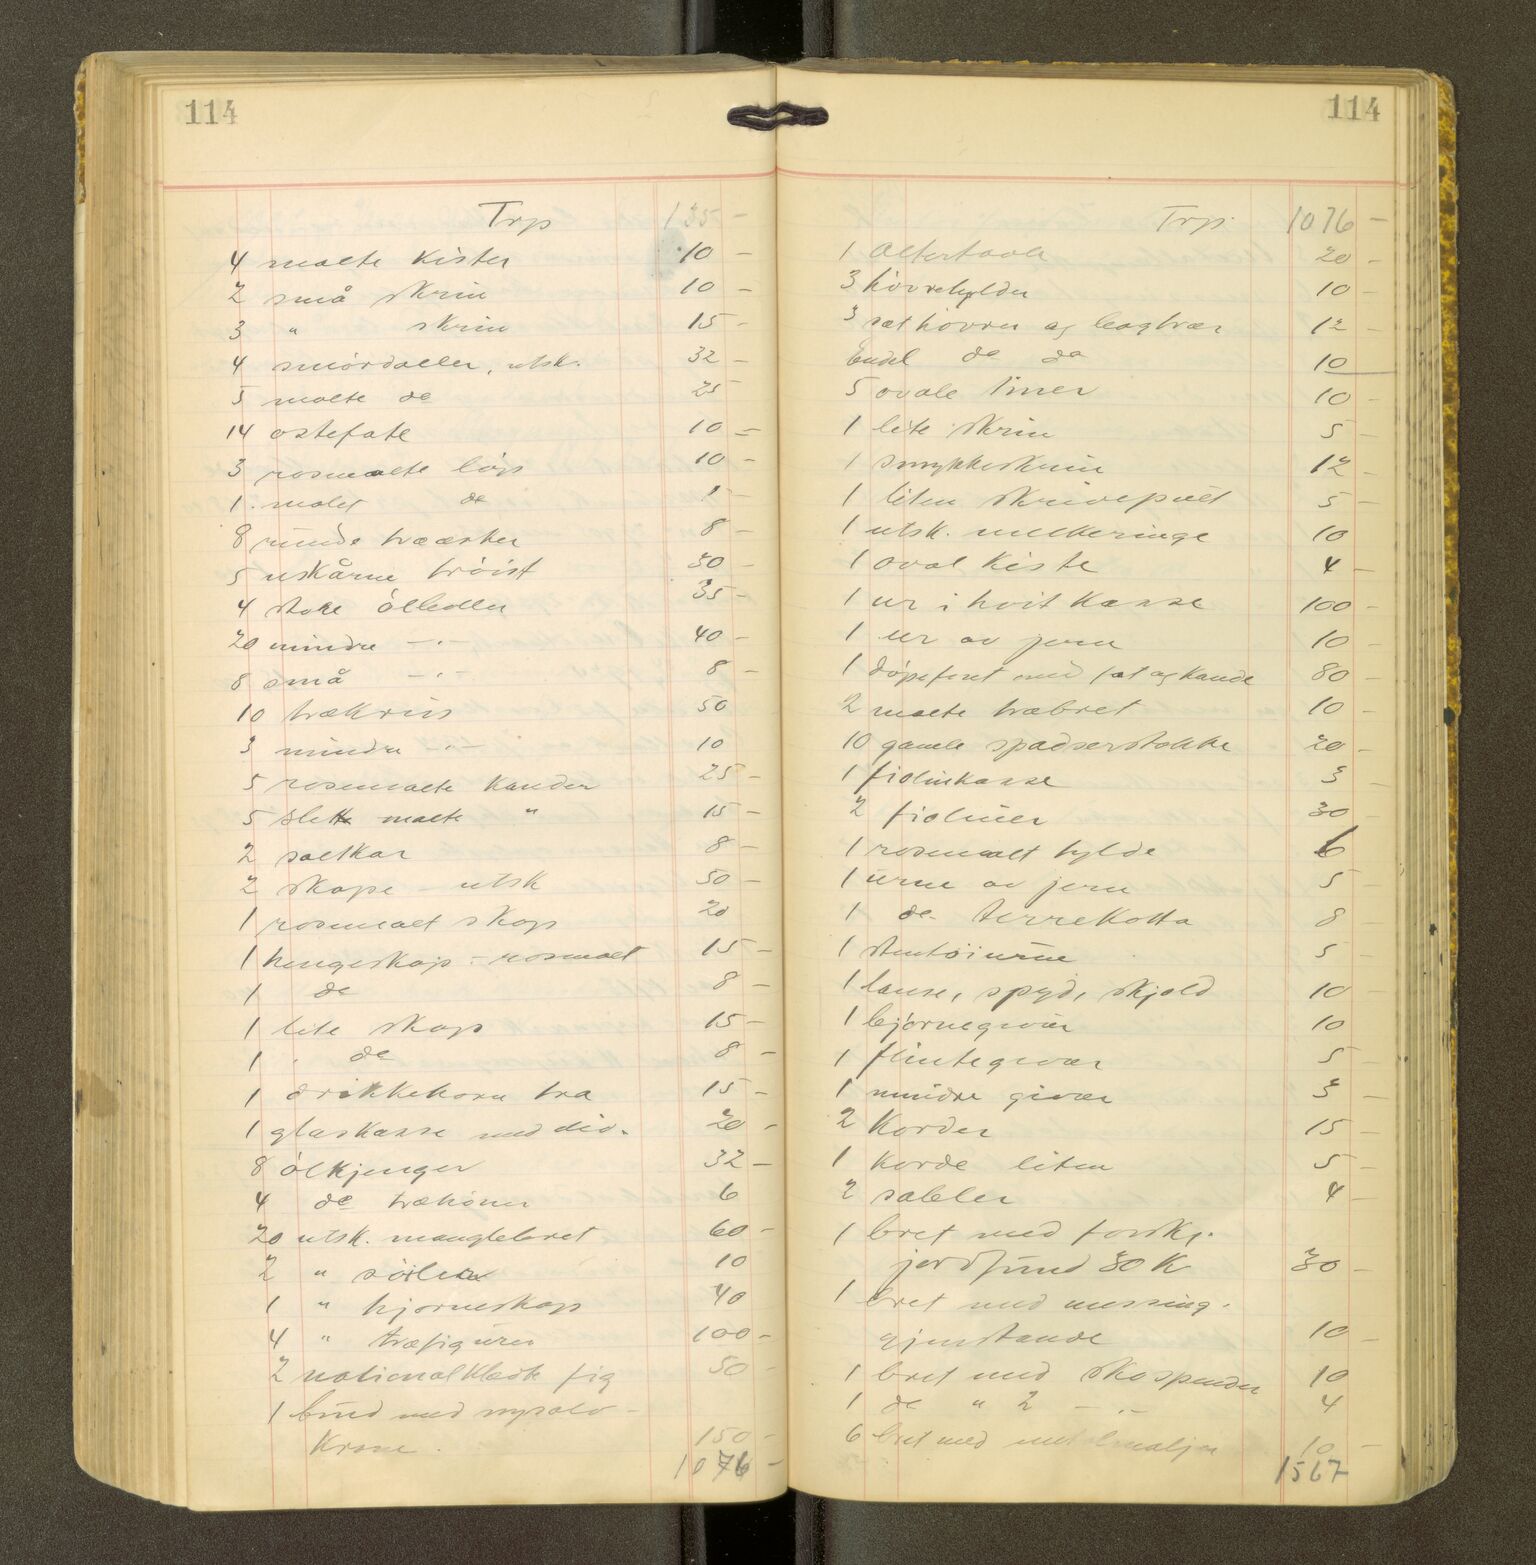 114
Trp 135 -
4 malte Kister 10 -
2 små skrin 10 -
3 " skrin 15 -
4 smördaller, utsk. 32 -
5 malte do 25
14 ostefate 10 -
3 rosmalte löp 10 -
1 malet do 1 -
8 runde trææsker 8 -
5 uskårne tröist 30 -
4 store ölboller 35 -
20 mindre -"- 40 -
8 små -"- 8 -
10 trækrus 50
3 mindre -"- 10
5 rosemalte kander 25 -
5 slette malte " 15 -
2 saltkar 8 -
2 skape - utsk 50 -
1 rosmalt skap 20
1 hengeskap - rosmalt 15 -
1 do 8 -
1 lite skap 15 -
1 do 8 -
1 drikkehorn tra 15 -
1 glaskasse med div. 20 -
8 ölkjenger 32 -
4 do træhöner 6
20 utsk. manglebret 60 -
2 " söiler 10
1 " hjorneskap 40
4 " træfigurer 100 -
2 nationalklædte fig 50 -
1 brud med nysølv -
Krone. 150 -
1076 -
114
Trp. 1076 -
1 Altertavle 20 -
3 hövrehylder 10 -
3 sæt hovrer og bogtrær 12 -
Endel do do 10
5 ovale tiner 10 -
1 lite skrin 5 -
1 smykkeskrin 12 -
1 liten skrivepult 5 -
1 utsk. melkeringe 10
1 oval kiste 4 -
1 ur i hvit kasse 100 -
1 ur av jern 10 -
1 döpefont med fat og kande 80 -
2 malte træbret 10 -
10 gamle spadserstokke 20 -
1 fiolinkasse 3 -
2 fioliner 30 -
1 rosemalt hylde 6
1 urne av jern 5 -
1 do. terrekotta 8 -
1 stentöiurne 5 -
1 lanse, spyd, skjold 10 -
1 bjørnegevær 10
1 flintegevær 5 -
1 mindre gevær 3 -
2 Korder 15 -
1 korde liten 5 -
2 sabler 4 -
1 bret med forskj.
jordfund 30 K 30 -
1 bret med messing-
gjenstande 10 -
1 bret med skospender 10
1 do " 2 -"- 4
6 bret med metalmaljer 10 -
1567